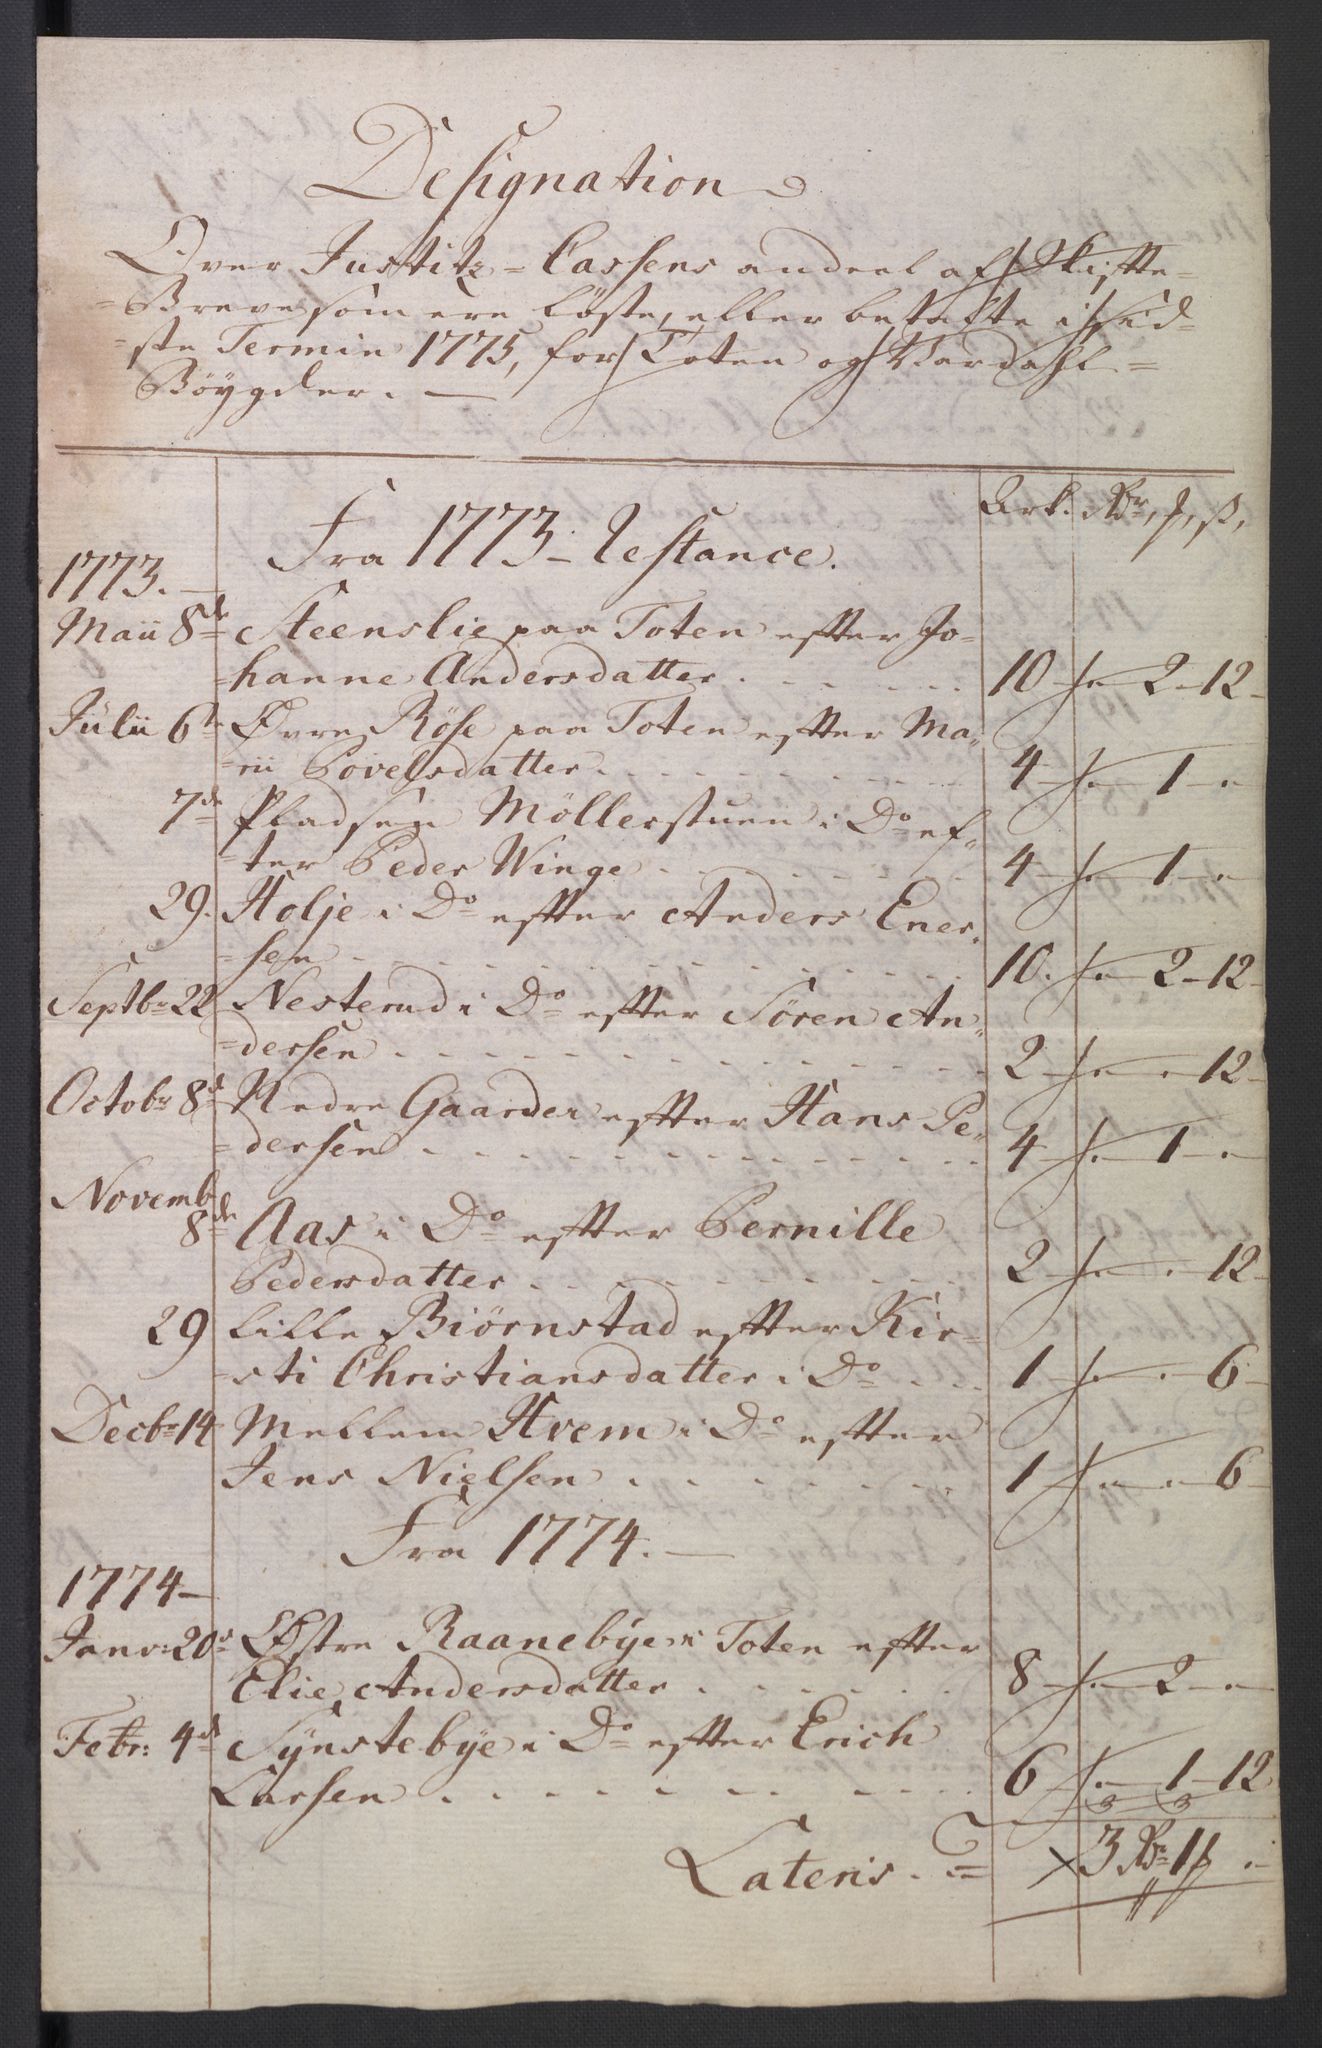 Designation
Over Justitz-Cassens andeel af Skifte-
=Breve som ere löste, eller betalte i sid-
=ste Termin 1775, for Toten og Vardahl=
Böygder. —
Ark. Rdr, ℔, ß,
Fra 1773 - Restance.
1773. —
Maii 8de Steenslie paa Toten efter Jo-
=hanne Andersdatter . . . . . . 10 - 2 - 12 -
Julii 6te Øvre Röse paa Toten efter Ma-
=rii Povelsdatter . . . . . . . 4 - 1 - "
7de Pladsen Möllerstuen i Do ef-
=ter Peder Winge . . . . . . 4 - 1 - "
29. Kolje i Do efter Anders Ener-
=sen . . . . . . . . . . 10. - 2 - 12 -
Septbr 22 Nesterud i Do efter Sören An-
=dersen . . . . . . . . . . 2 - " - 12 -
Octobr 8de Nedre Gaarder efter Hans Pe-
=dersen . . . . . . . . . . 4 - 1 - "
Novembr
8de Aas i Do efter Pernille
Pedersdatter . . . . . . . . 2 - " - 12 -
29 Lille Biörnstad efter Kir-
=sti Christiansdatter i Do . . . 1 - " - 6 -
Decbr 14 Mellem Hvem i Do efter
Jens Nielsen . . . . . . . 1 - " - 6 -
Fra 1774. —
1774 —
Janv: 20de Østre Raanebye i Toten efter
Elie Andersdatter . . . . . . 8 - 2 - "
Febr: 4de Synstebye i Do efter Erich
Larsen . . . . . . . . . 6 - 1 - 12
Lateris . = × 3 Rdr 1 ℔ . -